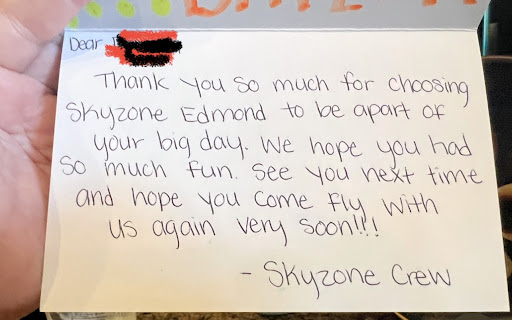 Dear
Thank you so much for choosing
Skyzone Edmond to be apart of
your big day. We hope you had
so much fun. See you next time
and hope you come fly with
us again very soon!!!
- Skyzone Crew